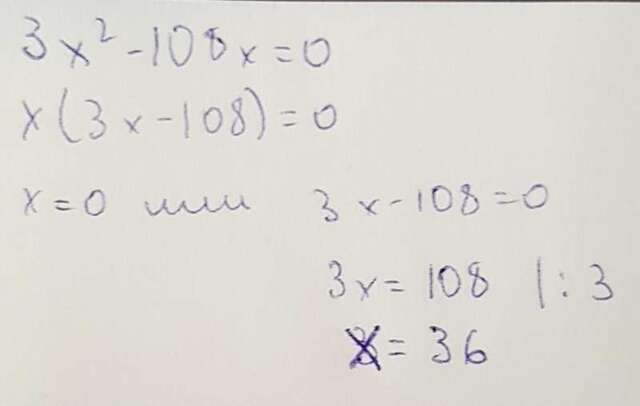 3x² - 108x = 0
x(3x - 108) = 0
x = 0 или 3x - 108 = 0
3x = 108 | : 3
x = 36